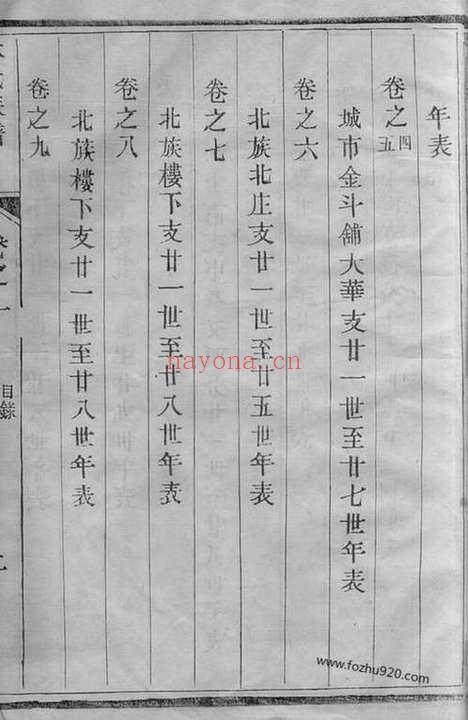 年表
卷之四五
城市金斗舖大華支廿一世至廿七世年表
卷之六
北族北庄支廿一世至廿五世年表
卷之七
北族樓下支廿一世至廿八世年表
卷之八
北族樓下支廿一世至廿八世年表
卷之九
目錄
nayona.cn
www.fozhu920.com